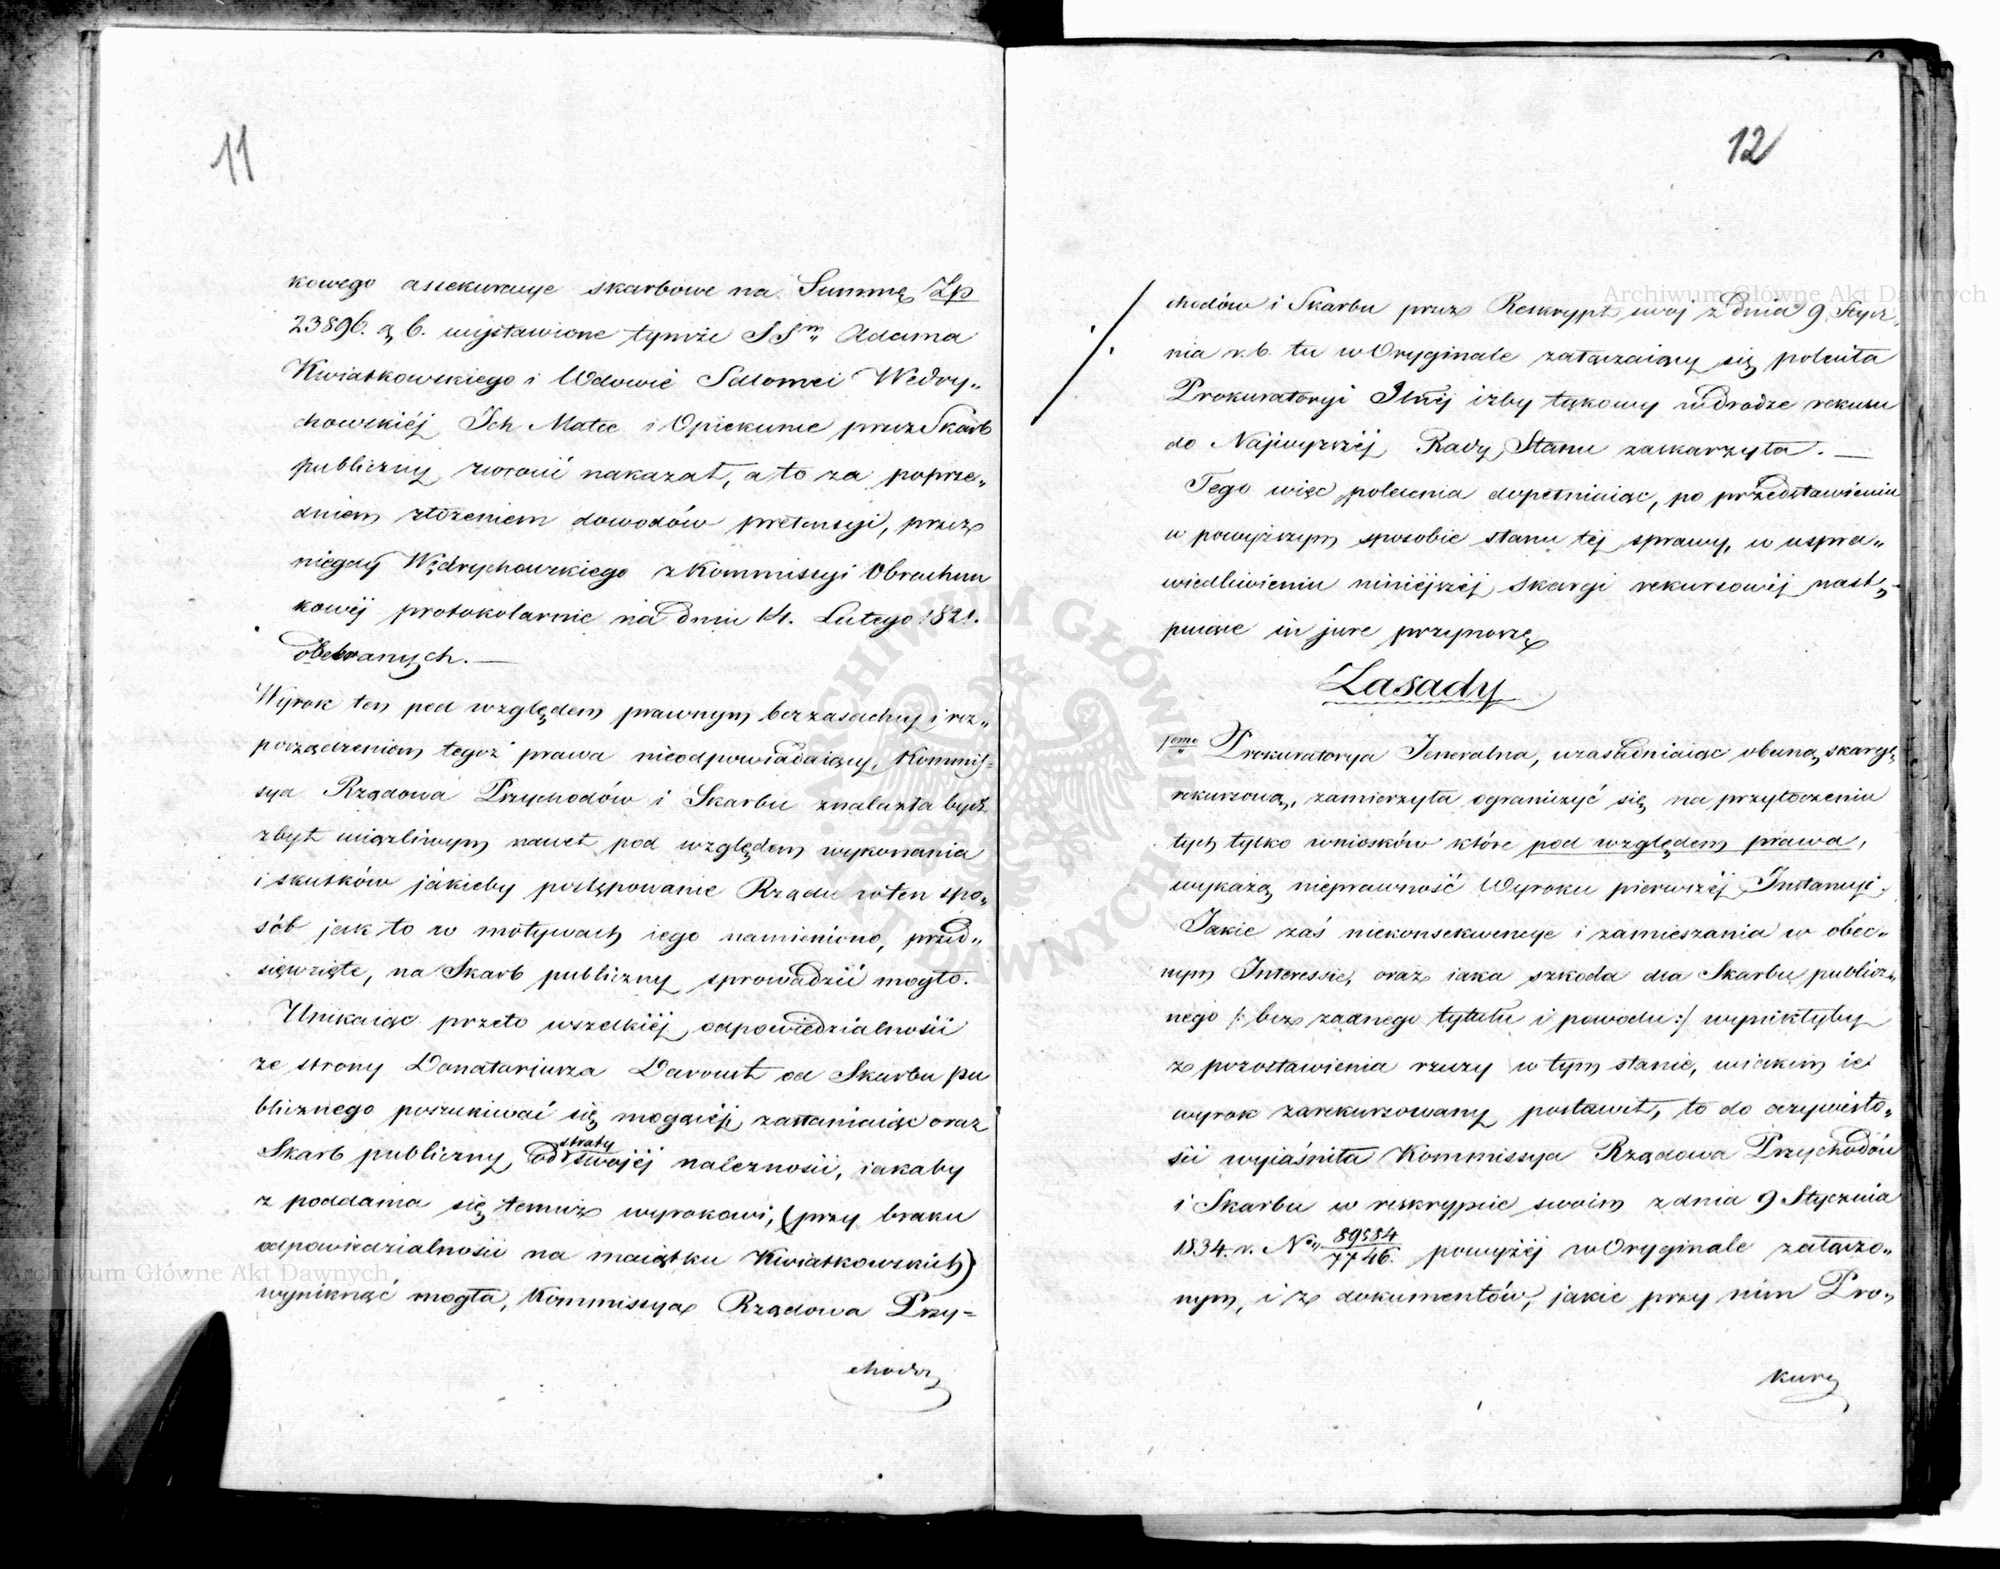 11
kowego assekuracye skarbowe na Summę Zp
23896. g 6. wystawione tymże SSm Adama
Kwiatkowskiego i Wdowie Salomei Wędry„
chowskiéj Ich Matce i Opiekunce przez Skarb
publiczny zwrócić nakazał, a to za poprze„
dniem złożeniem dowodów pretensyi, przez
niegdy Wędrychowskiego z Kommissyi Obrachun
kowéj protokolarnie na dniu 14. Lutego 1821.
odebranych. —
Wyrok ten pod względem prawnym bezzasadny i roz„
porządzeniom tegoż prawa nieodpowiadaiący, Kommis-
sya Rządowa Przychodów i Skarbu znalazła bydź
zbyt uciążliwym nawet pod względem wykonania
i skutków jakieby postępowanie Rządu w ten spo„
sób jak to w motywach iego namieniono, przed„
sięwzięte, na Skarb publiczny sprowadzić mogło.
Unikaiąc przeto wszelkiéj odpowiedzialności
ze strony Donataryusza Davoust od Skarbu pu
blicznego poszukiwać się mogącéj, zasłaniaiąc oraz
Skarb publiczny od straty swojéj należności, iakaby
z poddania się temuż wyrokowi, (przy braku
odpowiedzialności na maiątku Kwiatkowskich)
wyniknąć mogła, Kommissya Rządowa Przy=
chodó
12
chodów i Skarbu przez Reskrypt swój z dnia 9 Stycz„
nia r. b. tu w Oryginale załączaiący się poleciła
Prokuratoryi Jlnéj iżby takowy w drodze rekursu
do Najwyższéj Rady Stanu zaskarżyła. —
Tego więc polecenia dopełniaiąc, po przedstawieniu
w powyższym sposobie stanu téj sprawy, w uspra„
wiedliwieniu niniéjszéj skargi rekursowéj nastę„
puiące in jure przynoszę
Zasady
1mo Prokuratorya Jeneralna, uzasadniaiąc obecną skargę
rekursową, zamierzyła ograniczyć się na przytoczeniu
tych tylko wniosków które pod względem prawa,
wykażą nieprawność Wyroku pierwszéj Instancyi.
Jakie zaś niekonsekwencye i zamieszania w obec„
nym Interessie, oraz iaka szkoda dla Skarbu publicz„
nego /: bez żadnego tytułu i powodu :/ wynikłyby
z pozostawienia rzeczy w tym stanie, w iakim ie
wyrok zarekursowany postawił, to do oczywisto„
ści wyiaśniła Kommissya Rządowa Przychodów
i Skarbu w reskrypcie swoim z dnia 9 Stycznia
1834. r. No 89584/7746. powyżéj w Oryginale załączo„
nym, i z dokumentów, jakie przy nim Pro„
kura
Archiwum Główne Akt Dawnych
Archiwum Główne Akt Dawnych
ARCHIWUM GŁÓWNE AKT DAWNYCH